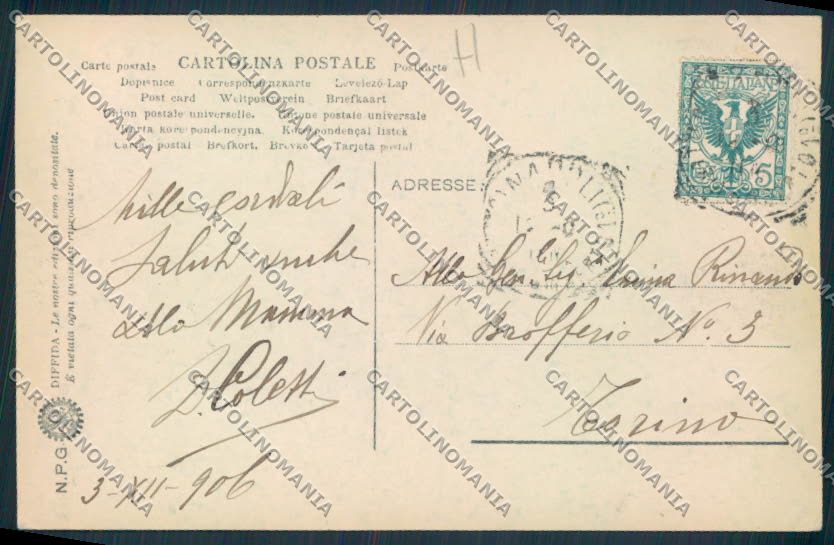 Carte postale CARTOLINA POSTALE Postkarte
Dopisnice Correspondenzkarte Levelező-Lap
Post card Weltpostverein Briefkaart
Union postale universelle. Unione postale universale
Karta korespondencyjna Korespondençai listek
Cartão postal Brefkort. Brevkort Tarjeta postal
H
POSTE ITALIANE
5
DIFFIDA - Le nostre edizioni sono depositate.
È vietata ogni qualsiasi riproduzione
N.P.G.
Mille cordiali
Saluti anche
alla Mamma
Coletti
3-XII-906
ADRESSE
Alla Gen. Sig.
Via Brofferio No. 3
Torino
CARTOLINOMANIA